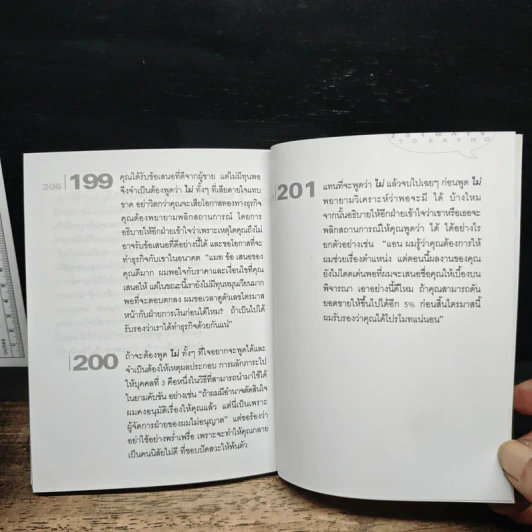 206
199
คุณได้รับข้อเสนอที่ดีจากผู้ขาย แต่ไม่มีทุนพอ
จึงจำเป็นต้องพูดว่า ไม่ ทั้งๆ ที่เสียดายใจแทบ
ขาด อย่าวิตกว่าคุณจะเสียโอกาสทองทางธุรกิจ
คุณต้องพยายามพลิกสถานการณ์ โดยการ
อธิบายให้อีกฝ่ายเข้าใจว่าเพราะเหตุใดคุณถึงไม่
อาจรับข้อเสนอที่ดีอย่างนี้ได้ และขอโอกาสที่จะ
ทำธุรกิจกับเขาในอนาคต "แมท ข้อ เสนอของ
คุณดีมาก ผมพอใจกับราคาและเงื่อนไขที่คุณ
เสนอให้ แต่ในขณะนี้เรายังไม่มีทุนหมุนเวียนมาก
พอที่จะตอบตกลง ผมขอเวลาดูตัวเลขไตรมาส
หน้ากับฝ่ายการเงินก่อนได้ไหม? ถ้าเป็นไปได้
รับรองว่าเราได้ทำธุรกิจด้วยกันแน่"
200
ถ้าจะต้องพูด ไม่ ทั้งๆ ที่ใจอยากจะพูดได้และ
จำเป็นต้องให้เหตุผลประกอบ การผลักภาระไป
ให้บุคคลที่ 3 คือหนึ่งในวิธีที่สามารถนำมาใช้ได้
ในยามคับขัน อย่างเช่น "ถ้าผมมีอำนาจตัดสินใจ
ผมคงอนุมัติเรื่องให้คุณแล้ว แต่นี่เป็นเพราะ
ผู้จัดการฝ่ายของผมไม่อนุญาต" แต่ขอร้องว่า
อย่าใช้อย่างพร่ำเพรื่อ เพราะจะทำให้คุณกลาย
เป็นคนนิสัยไม่ดี ที่ชอบปัดสวะให้พ้นตัว
201 WAYS
TO SAY NO
201
แทนที่จะพูดว่า ไม่ แล้วจบไปเฉยๆ ก่อนพูด ไม่
พยายามวิเคราะห์ว่าพอจะมี ได้ บ้างไหม
จากนั้นอธิบายให้อีกฝ่ายเข้าใจว่าเขาหรือเธอจะ
พลิกสถานการณ์ให้คุณพูดว่า ได้ ได้อย่างไร
ยกตัวอย่างเช่น "แอน ผมรู้ว่าคุณต้องการให้
ผมช่วยเรื่องตำแหน่ง แต่ตอนนี้ผลงานของคุณ
ยังไม่โดดเด่นพอที่ผมจะเสนอชื่อคุณให้เบื้องบน
พิจารณา เอาอย่างนี้ดีไหม ถ้าคุณสามารถดัน
ยอดขายให้ขึ้นไปได้อีก 5% ก่อนสิ้นไตรมาสนี้
ผมรับรองว่าคุณได้โปรโมทแน่นอน"